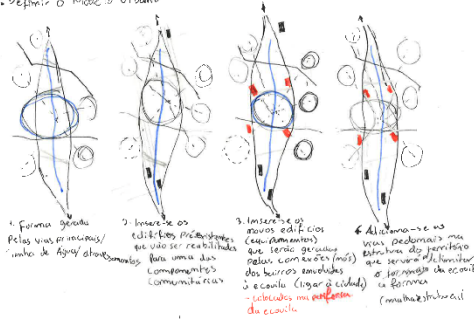 • Definir o Modelo Urbano
1. Forma gerada
pelas vias principais/
linha de água/atravessamentos
2. Insere-se os
edifícios pré-existentes
que vão ser reabilitados
para uma das
componentes
comunitárias
3. Insere-se os
novos edifícios
(equipamentos)
que serão gerados
pelas conexões (nós)
dos bairros envolventes
à ecovila (ligar à cidade)
- colocados na periferia
da ecovila
4. Adiciona-se as
vias pedonais na
estrutura do território
que servirá delimitar
o formato da ecovila
e forma
(malha estrutural)